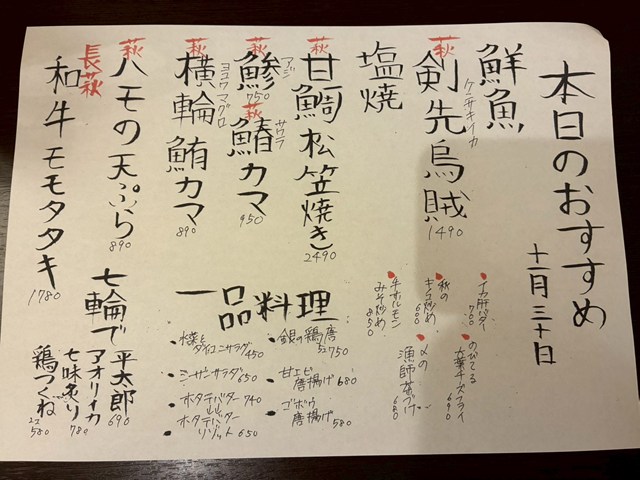 本日のおすすめ
十一月三十日
鮮魚
萩
剣先烏賊
ケンサキイカ
1490
塩焼
萩
甘鯛松笠焼き
2490
萩
鯵
アジ
750
萩
鰆カマ
サワラ
950
萩
横輪鮪カマ
ヨコワマグロ
890
萩
ハモの天ぷら
890
長萩
和牛モモタタキ
1780
七輪で
平太郎
690
アオリイカ
七味炙り
780
鶏つくね
580
一品料理
760
のびてる
大葉チーズフライ
690
秋の
キノコ炒め
680
〆の
漁師茶づけ
680
牛ホルモン
みそ炒め
850
水菜と
ダイコンサラダ 450
シーザーサラダ 650
ホタテバター 740
ホタテバター
リゾット 650
750
甘エビ
唐揚げ 680
ゴボウ
唐揚げ 580